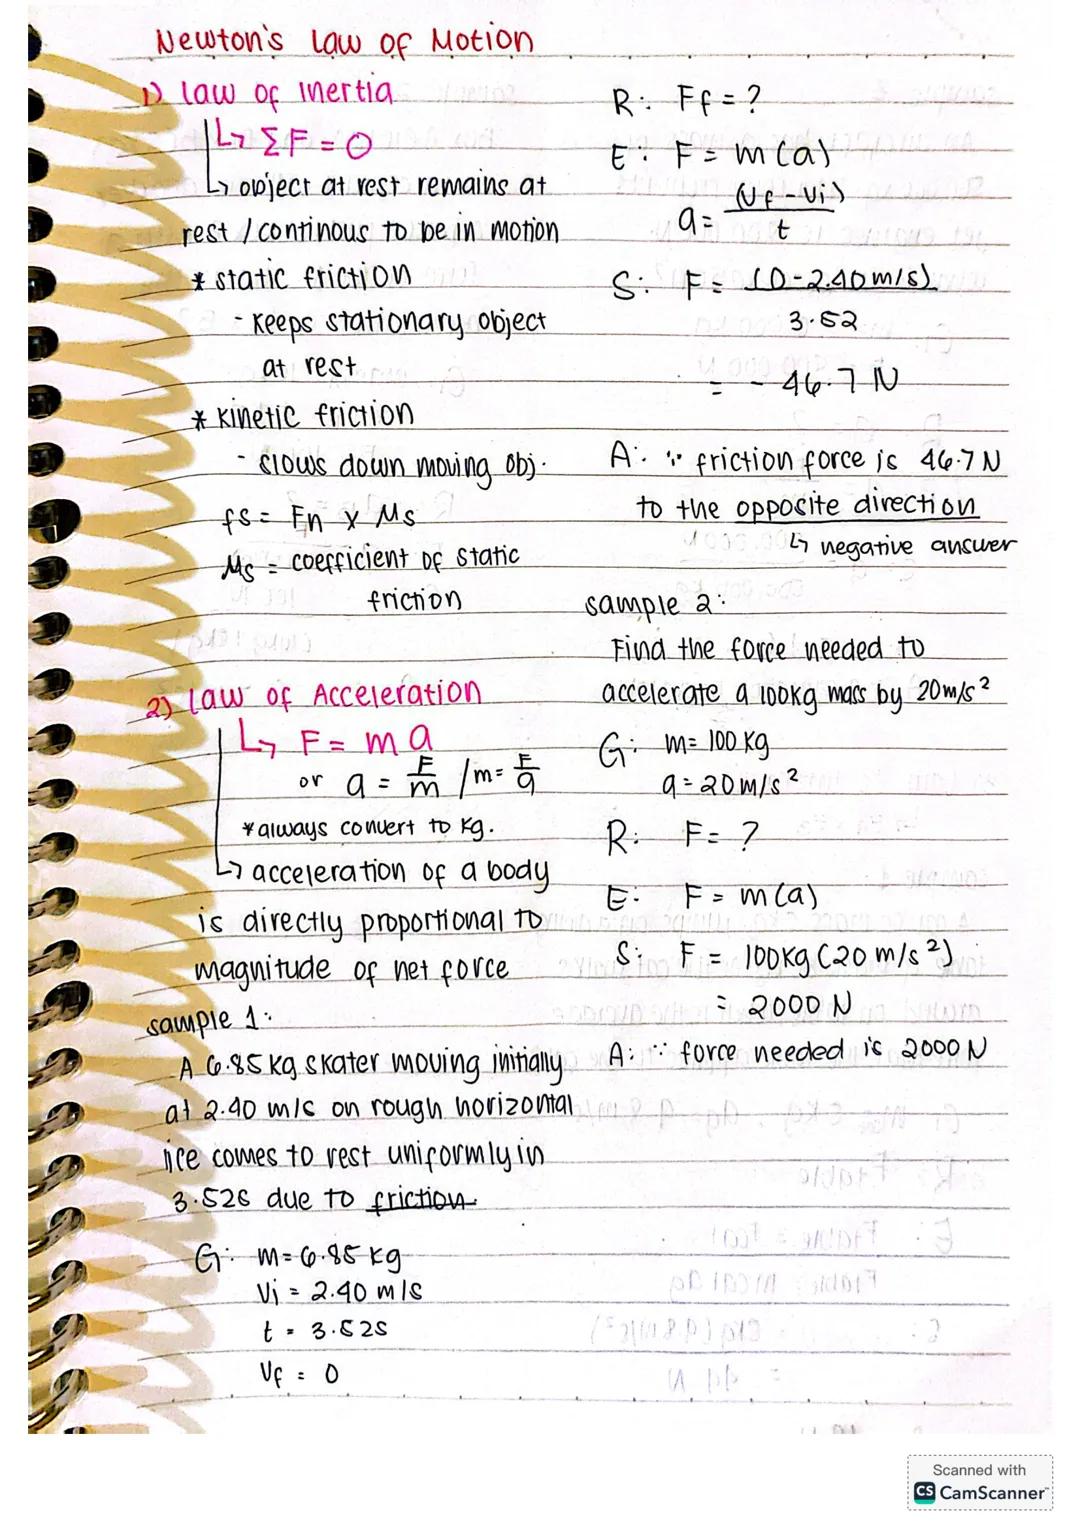 Newton's Law of Motion
1) Law of inertia
↳ ΣF = 0
↳ object at rest remains at
rest / continous to be in motion
* static friction
- keeps stationary object
at rest
* kinetic friction
- slows down moving obj.
fs = Fn x Ms
Ms = coefficient of static
friction
2) Law of Acceleration
↳ F = ma
or a = F/m / m = F/a
* always convert to kg.
↳ acceleration of a body
is directly proportional to
magnitude of net force
sample 1:
A 6.85 kg skater moving initially
at 2.40 m/s on rough horizontal
ice comes to rest uniformly in
3.52s due to friction
G: m = 6.85 kg
Vi = 2.40 m/s
t = 3.52s
Vf = 0
R: Ff = ?
E: F = m(a)
a = (Vf - Vi) / t
S: F = (0 - 2.40 m/s) / 3.52
= - 46.7 N
A: ∵ friction force is 46.7 N
to the opposite direction
↳ negative answer
sample 2:
Find the force needed to
accelerate a 100kg mass by 20 m/s²
G: m = 100 kg
a = 20 m/s²
R: F = ?
E: F = m(a)
S: F = 100kg (20 m/s²)
= 2000 N
A: ∵ force needed is 2000 N
Scanned with
CS CamScanner